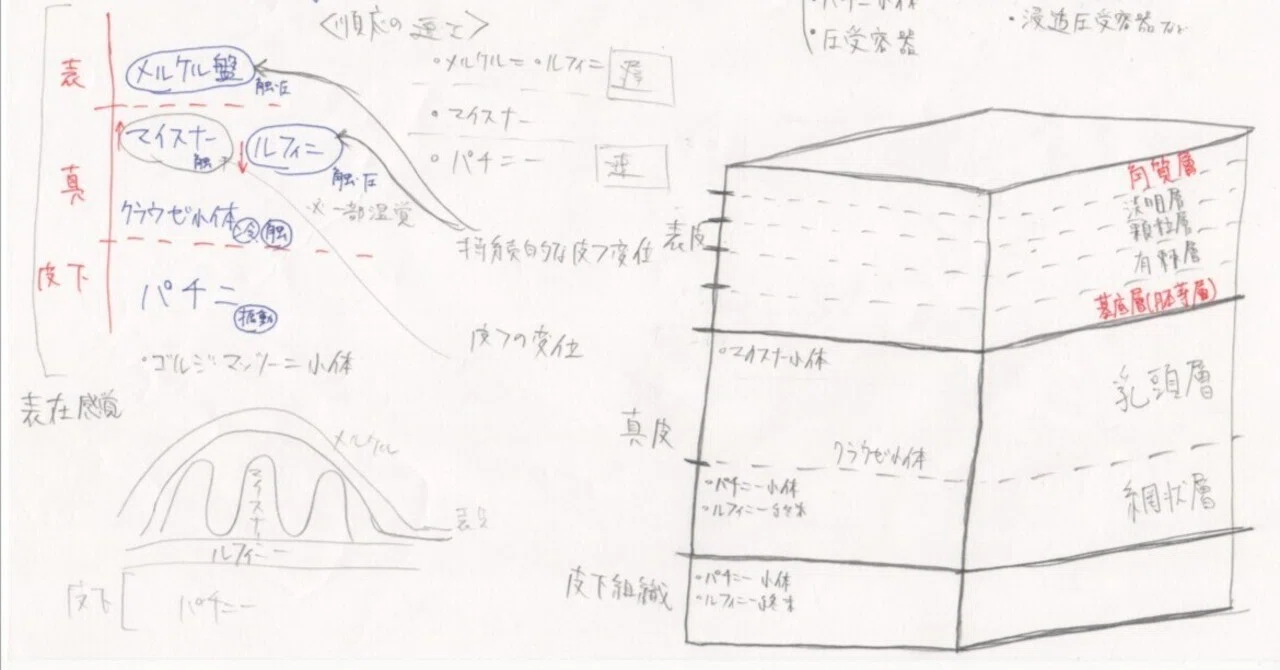 <順応の速さ>
・メルケル=・ルフィニ 遅
・マイスナー
・パチニー 速
表
メルケル盤
触・圧
真
マイスナー
触
ルフィニ
触・圧
※一部温覚
クラウゼ小体 冷 触
持続的な皮フ変位
皮下
パチニ
振動
皮フの変位
・ゴルジ・マッツーニ小体
表在感覚
メルケル
マイスナー
ルフィニー
表皮
皮下
パチニー
・パチニー小体
・圧受容器
・浸透圧受容器など
表皮
角質層
淡明層
顆粒層
有棘層
基底層(胚芽層)
真皮
・マイスナー小体
乳頭層
クラウゼ小体
・パチニー小体
・ルフィニー終末
網状層
皮下組織
・パチニー小体
・ルフィニー終末